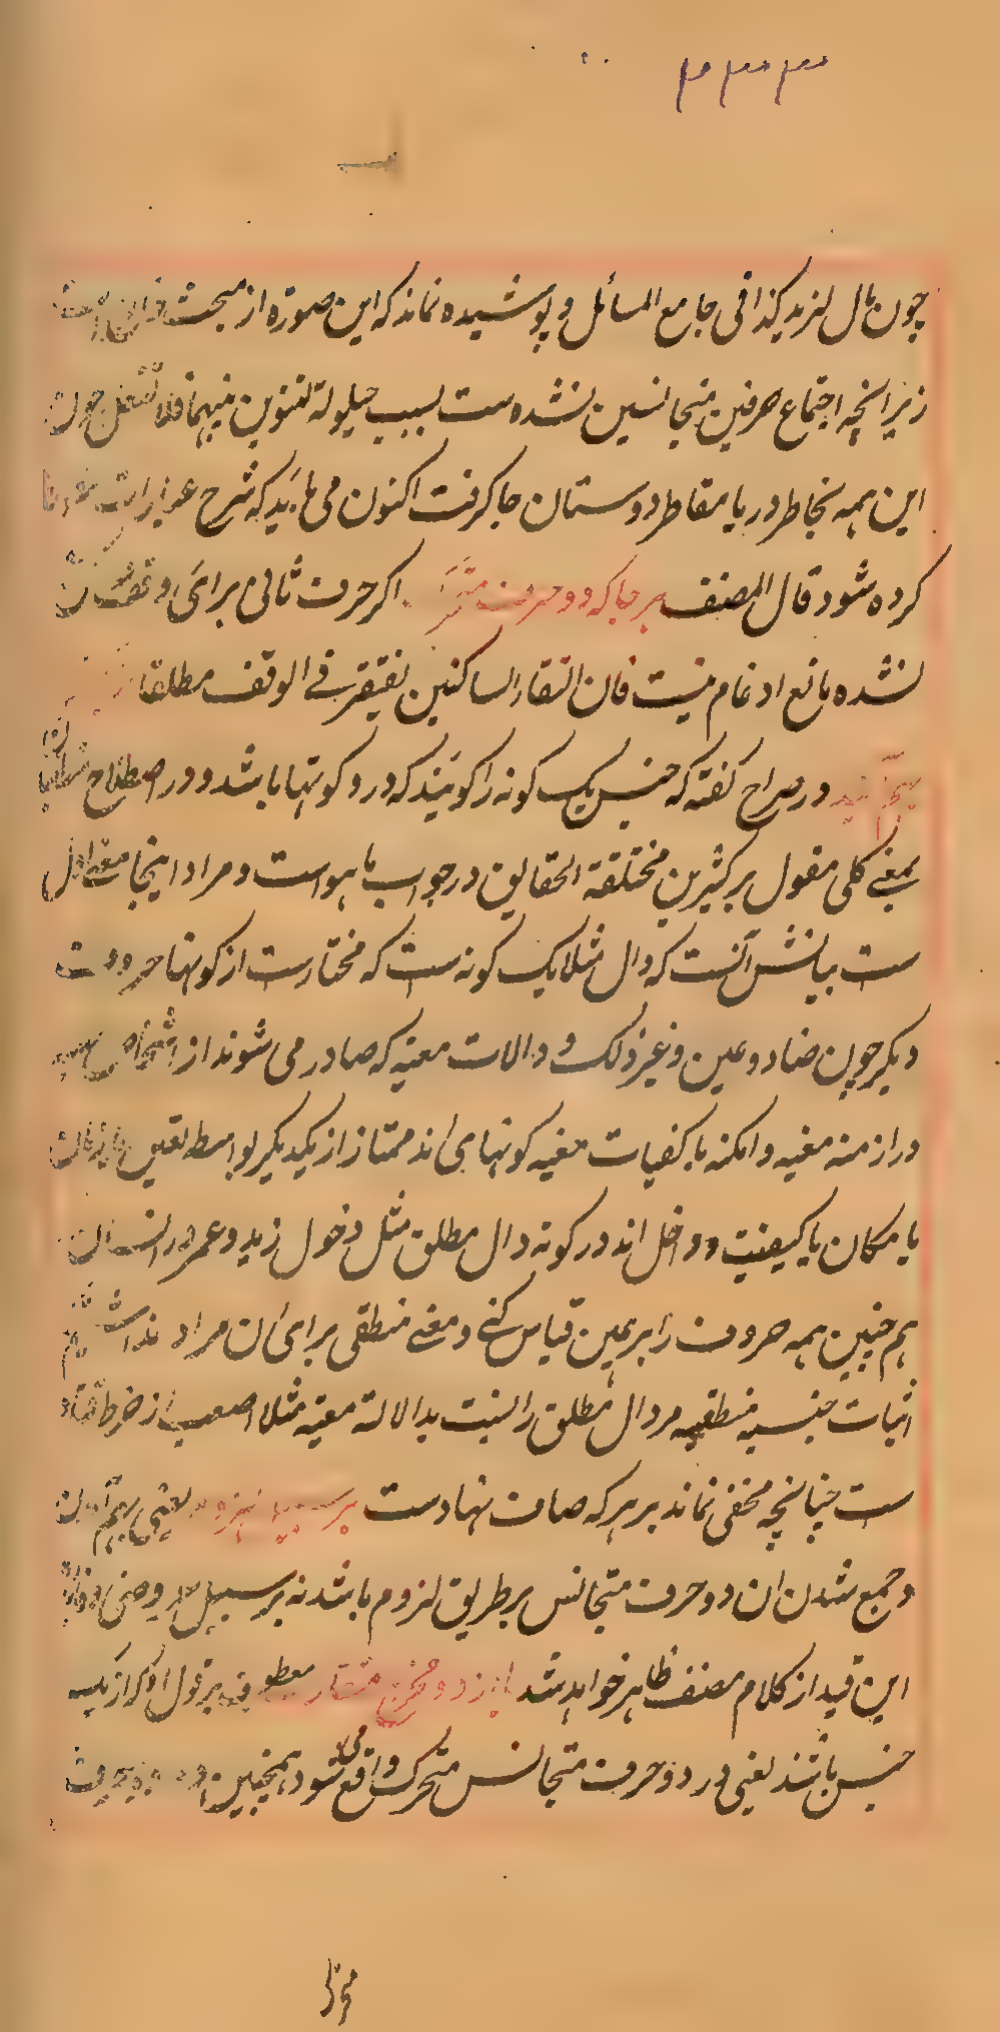 ۳۳۳
چون مال لزید کذا فی جامع المسائل و پوشیده نماند که این صورة از مبحث
زیرانچه اجتماع حرفین متجانسین نشده ست بسبب حیلولة تنوین بینهما فلا تغفل چون
این همه بخاطر دریا مقاطر دوستان جا کرفت اکنون می باید که شرح عبارات
کرده شود قال المصنف هر جا که دو حرف اکر حرف ثانی برای وقف
نشده مانع ادغام نیست فان التقاء الساکنین یغتفر فی الوقف مطلقا
در صراح کفته که جنس یک کونه را کویند که درو کونها باشد و در اصطلاح
بمعنی کلی مقول بر کثیرین مختلفة الحقایق در جواب ما هو است و مراد اینجا معنی اول
ست بیانش آنست که دال مثلا یک کونه ست که مختارست از کونها حروف
دیکر چون ضاد و عین و غیر ذلک و دالات معینه که صادر می شوند از اشخاص
در ازمنه معینه و امکنه با کیفیات معینه کونهای اند ممتاز از یکدیکر بواسطه تعین
یا مکان یا کیفیت و داخل اند در کونه دال مطلق مثل دخول زید و عمر در انسان
هم چنین همه حروف را برهمین قیاس کنی و معنی منطقی برای ان مراد
اثبات جنسیه منطقیه مر دال مطلق را نسبت بدالالة معینه مثلا اصعب از خرط القتاد
ست چنانچه مخفی نماند بر هر که صاف نهادست یعنی بهم آمدن
و جمع شدن ان دو حرف متجانس بر طریق لزوم باشد نه بر سبیل
این قید از کلام مصنف ظاهر خواهد شد یا از دو مخرج متقارب معطوف بر قول او که از یک
جنس باشند یعنی در دو حرف متجانس متحرک واقع می شود همچنین دو حرف